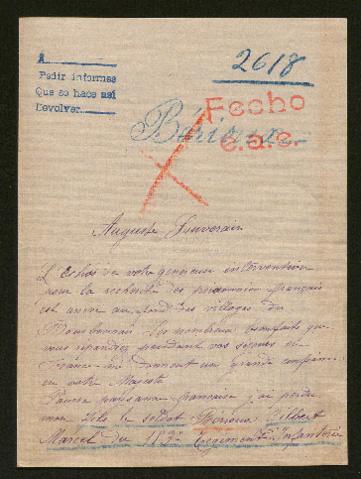 A
Pedir informes
Que se hace así
Devolver
2618
Fecho
c.a.c.
Auguste Souverain
L'Echo de votre généreuse intervention
pour la recherche des prisonniers français
est arrivé au fond des villages du
Les nombreux bienfaits que
vous répandiez pendant vos séjours en
France me donnent une grande confiance
en votre Majesté
Pauvre paysanne française j'ai perdu
mon fils le soldat Gilbert
Marcel du Régiment d'Infanterie